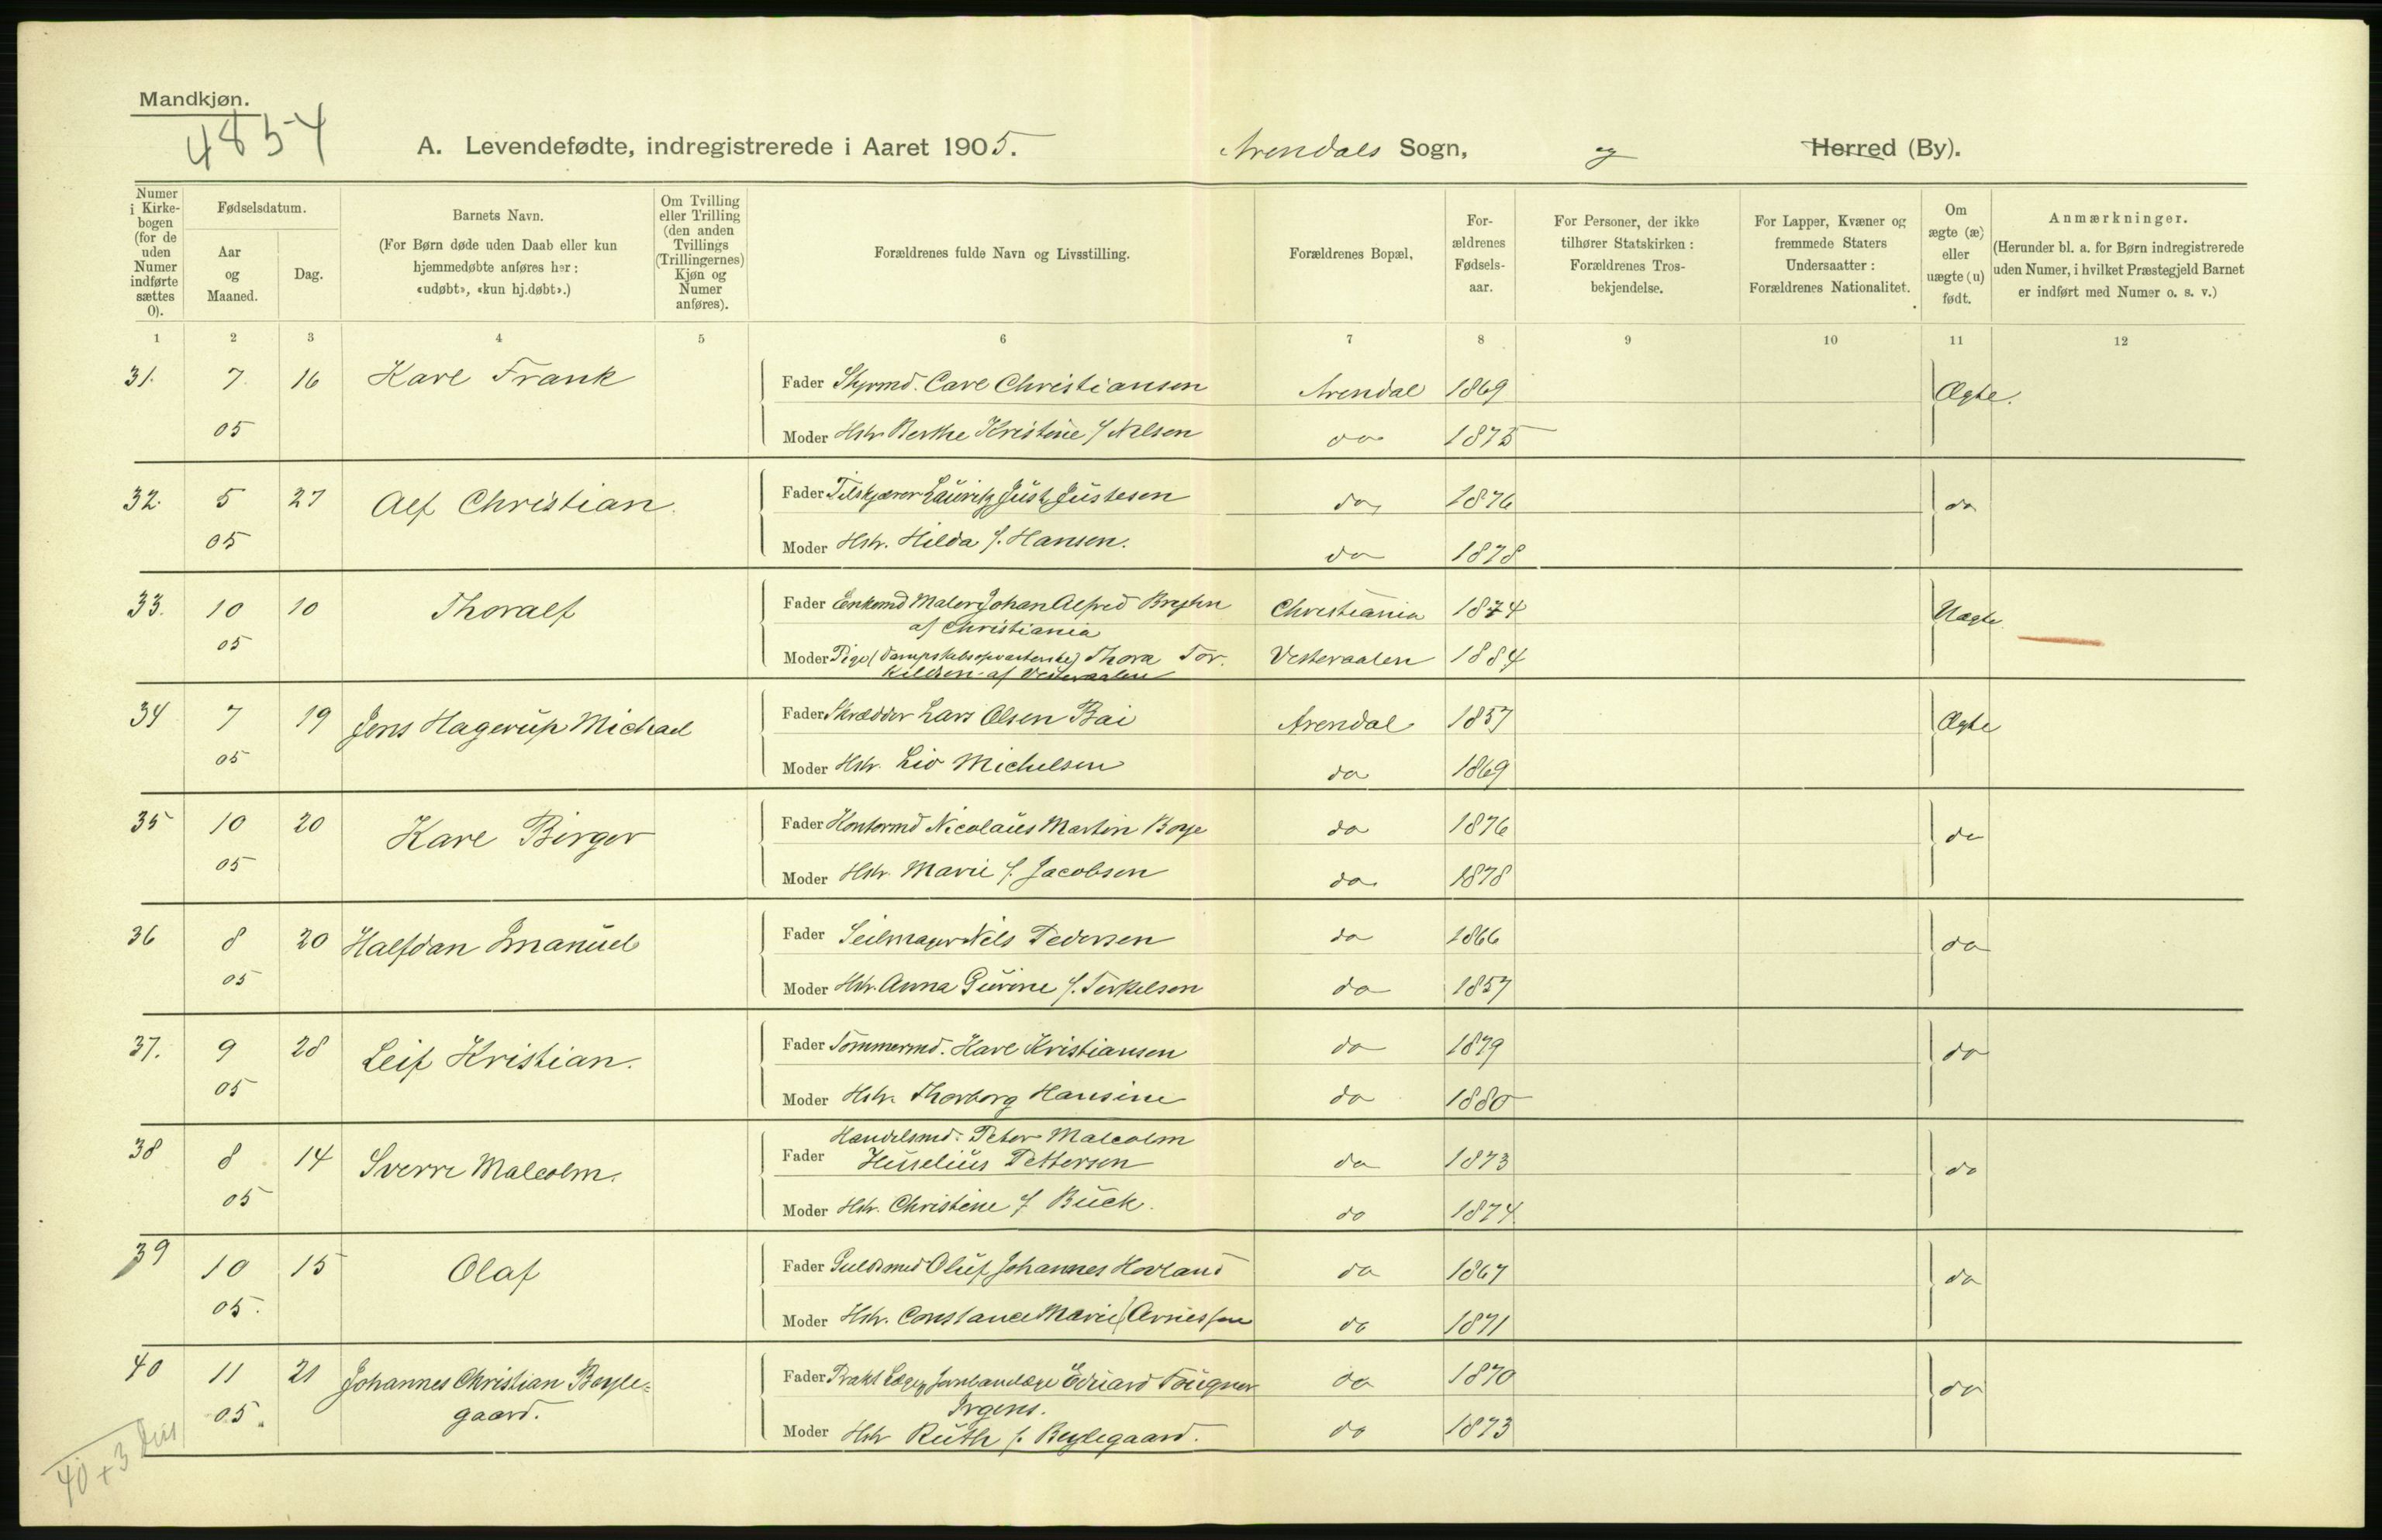 Mandkjøn.
4854
A. Levendefødte, indregistrerede i Aaret 1905.
Arendals Sogn, og Herred (By).
Numer i Kirke-bogen (for de uden Numer indførte sættes 0).
Fødselsdatum.
Aar og Maaned.
Dag.
Barnets Navn.
(For Børn døde uden Daab eller kun hjemmedøbte anføres her: «udøbt», «kun hj.døbt».)
Om Tvilling eller Trilling (den anden Tvillings (Trillingernes) Kjøn og Numer anføres).
Forældrenes fulde Navn og Livsstilling.
Forældrenes Bopæl,
For-ældrenes Fødsels-aar.
For Personer, der ikke tilhører Statskirken: Forældrenes Tros-bekjendelse.
For Lapper, Kvæner og fremmede Staters Undersaatter: Forældrenes Nationalitet.
Om ægte (æ) eller uægte (u) født.
Anmærkninger.
(Herunder bl. a. for Børn indregistrerede uden Numer, i hvilket Præstegjeld Barnet er indført med Numer o. s. v.)
1 2 3 4 5 6 7 8 9 10 11 12
31. 7. 16 Karl Frank Fader Styrmd. Carl Christiansen Arendal 1869 Ægte.
05 Moder Hstr Berthe Kristine f Nilsen do 1875
32. 5 27 Alf Christian. Fader Lauritz Just Justesen do 1876 do
05 Moder Hstr. Hilda f. Hansen. do 1878
33. 10 10 Thoralf Fader Enkemd Maler Johan Alfred Christiania 1874 Uægte
af Christiania
05 Moder Pige (Dampskibsopvarterske) Thora Tor. Vesteraalen 1884
kildsen af Vesteraalen
34 7 19 Jens Hagerup Michael Fader Skrædder Lars Olsen Bai Arendal 1857 Ægte
05 Moder Hstr. Liv Michelsen do 1869
35 10 20 Karl Birger Fader Kontormd Nicolaus Martin Boye do 1876 do
05 Moder Hstr. Marie f. Jacobsen do. 1878
36 8 20 Halfdan Emanuel Fader Seilmager Nils Pedersen do 1866 do
05 Moder Hstr. Anna Gurine f. Terkelsen do 1857
37. 9 28 Leif Kristian. Fader Tømmermd. Karl Kristiansen do 1879 do
05 Moder Hstr. Thorborg Hansine do 1880
38 8 14 Sverre Malcolm. Handelsmd. Peter Malcolm
Fader Huselius Pettersen do 1873 do
05 Moder Hstr. Christine f Buch. do 1874
39 10 15 Olaf Fader Guldsmed Oluf Johannes Hovland do 1867 do
05. Moder Hstr. Constance Marie f Arnessen do 1871
40 11 21 Johannes Christian Beyle= Fader Prakt Læge Edvard Fougner do 1870 do
gaard. Irgens.
05. Moder Hstr Ruth f. Beylegaard. do 1873
40 + 3